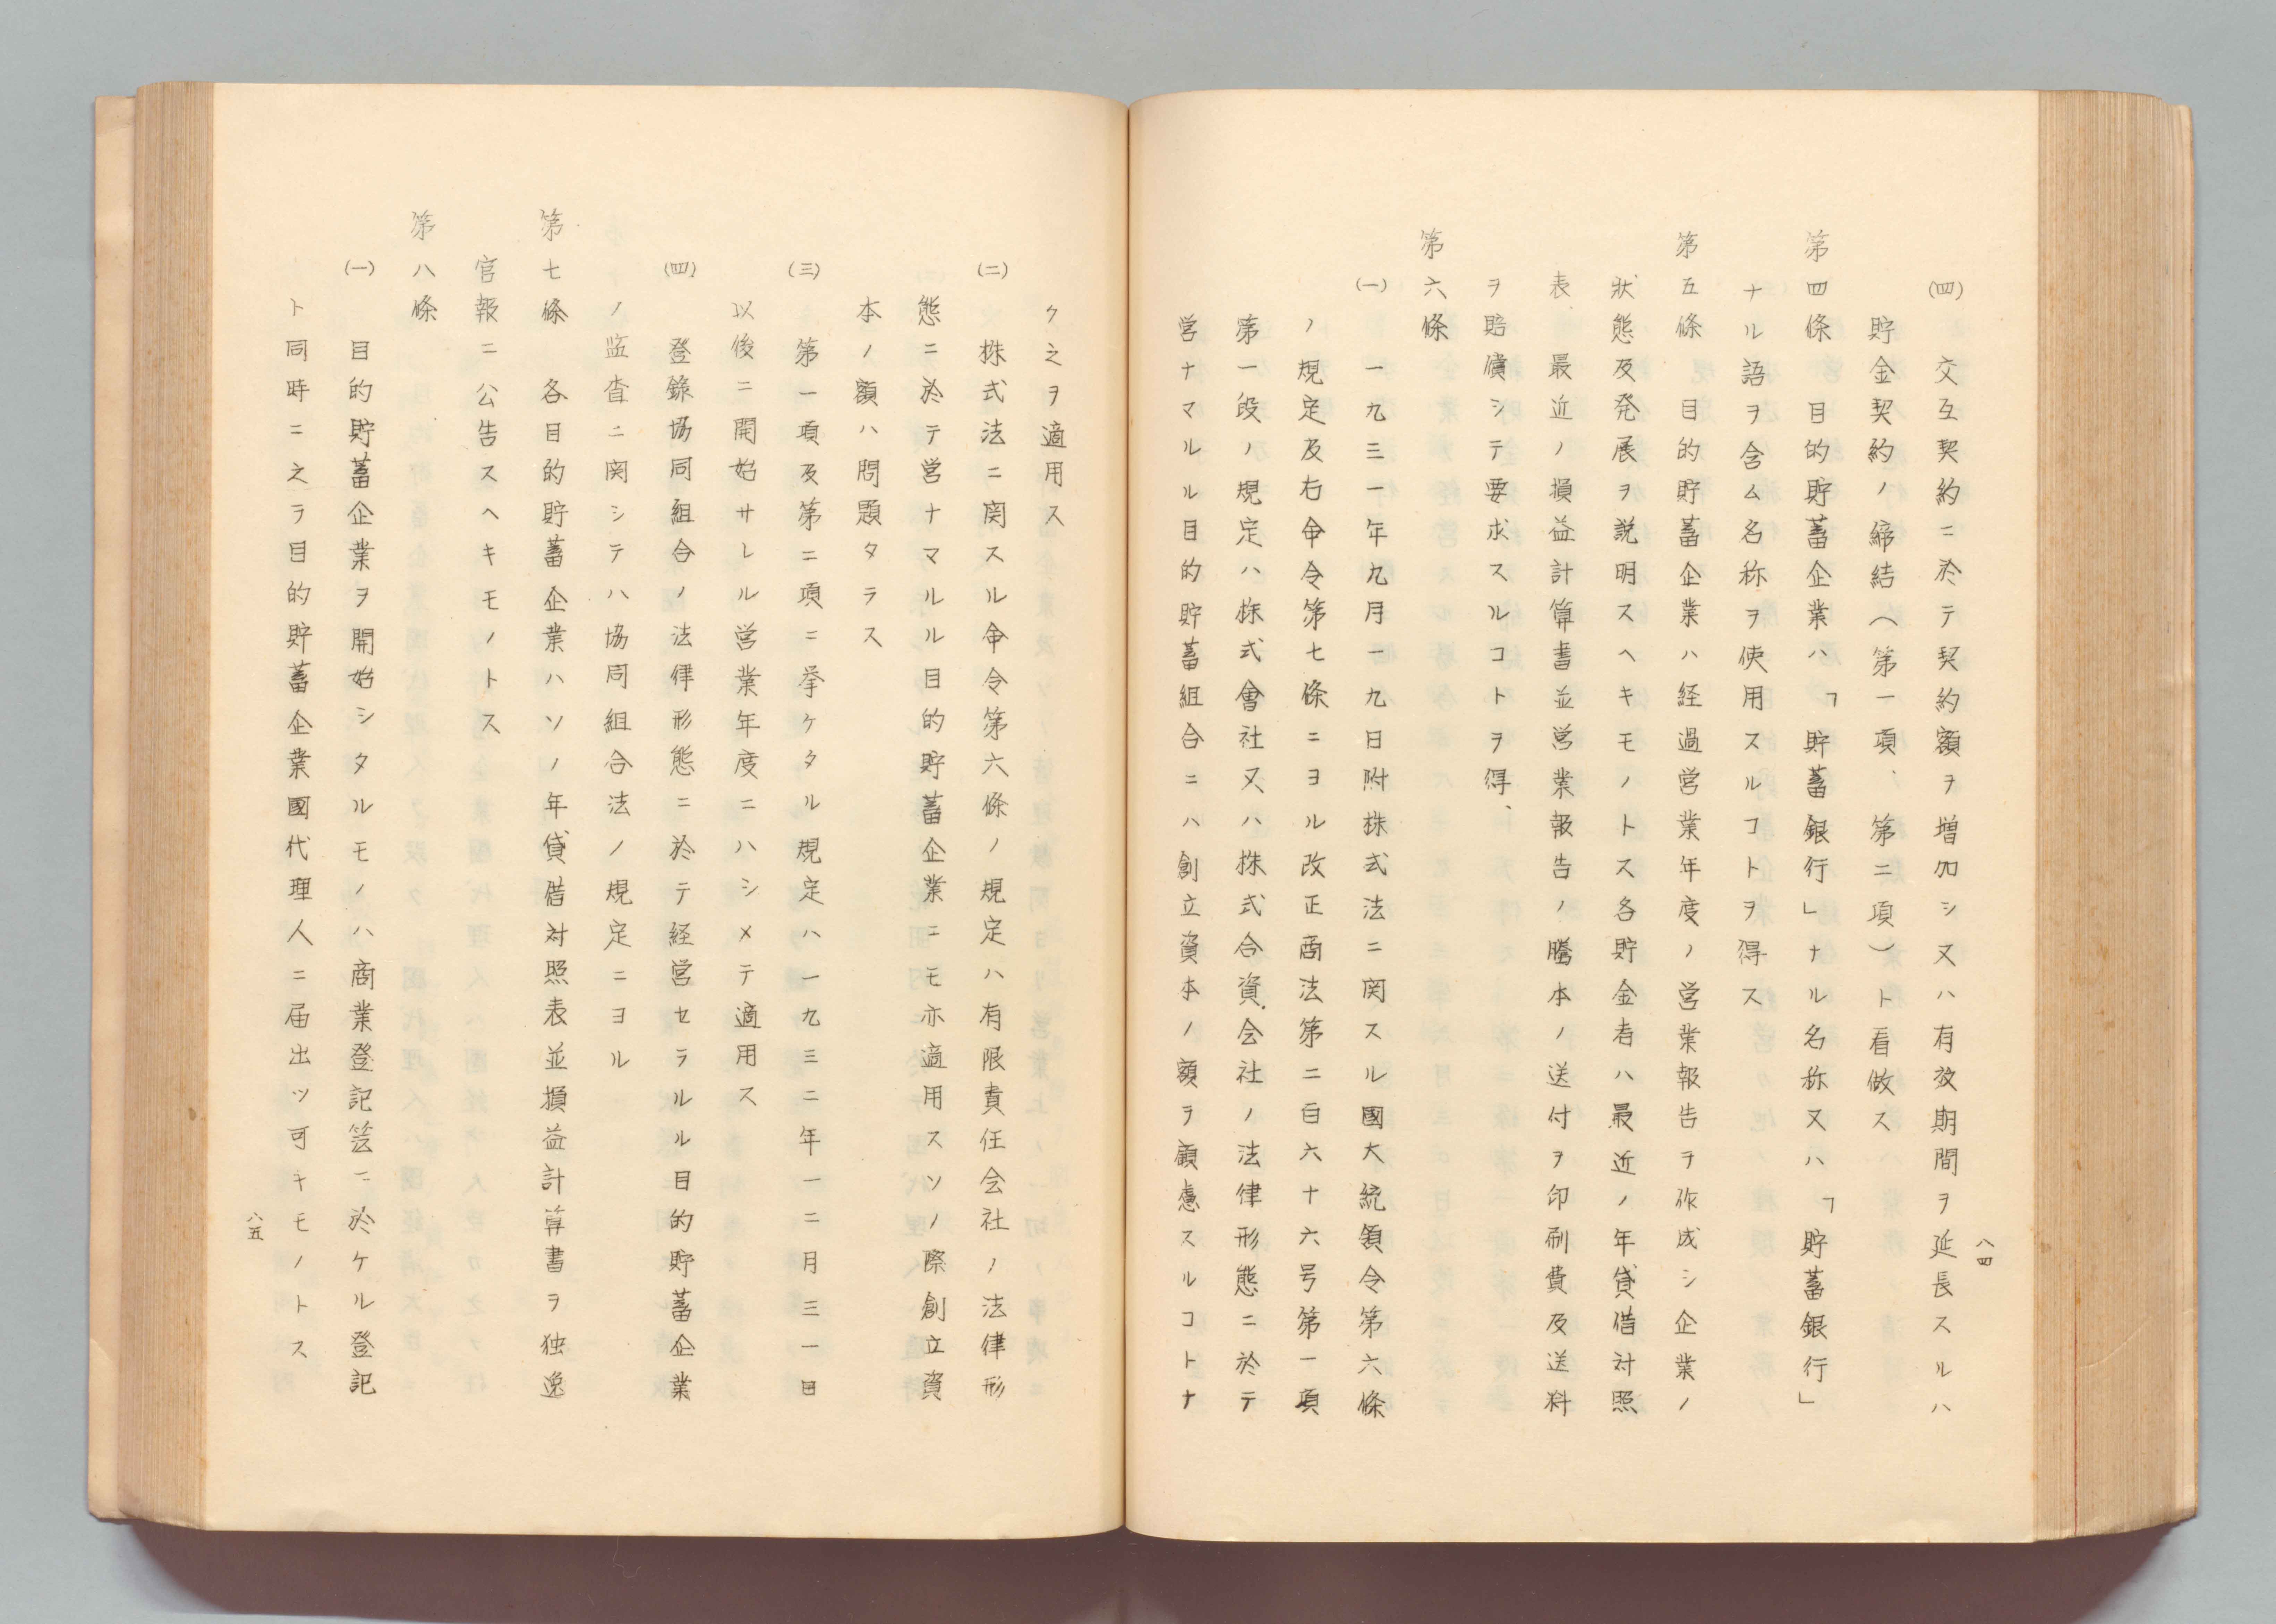 ㈣　交互契約ニ於テ契約額ヲ増加シ又ハ有效期間ヲ延長スルハ
貯金契約ノ締結（第一項、第二項）ト看做ス
第四條　目的貯蓄企業ハ「貯蓄銀行」ナル名称又ハ「貯蓄銀行」
ナル語ヲ含ム名称ヲ使用スルコトヲ得ス
第五條　目的貯蓄企業ハ経過営業年度ノ営業報告ヲ作成シ企業ノ
狀態及発展ヲ説明スヘキモノトス各貯金者ハ最近ノ年貸借対照
表、最近ノ損益計算書並営業報告ノ騰本ノ送付ヲ印刷費及送料
ヲ賠償シテ要求スルコトヲ得、
第六條
㈠　一九三一年九月一九日附株式法ニ関スル國大統領令第六條
ノ規定及右命令第七條ニヨル改正商法第二百六十六号第一項
第一段ノ規定ハ株式會社又ハ株式合資会社ノ法律形態ニ於テ
営ナマルル目的貯蓄組合ニハ創立資本ノ額ヲ顧慮スルコトナ
八四
ク之ヲ適用ス
㈡　株式法ニ関スル命令第六條ノ規定ハ有限責任会社ノ法律形
態ニ於テ営ナマルル目的貯蓄企業ニモ亦適用スソノ際創立資
本ノ額ハ問題タラス
㈢　第一項及第二項ニ挙ケタル規定ハ一九三二年一二月三一日
以後ニ開始サレル営業年度ニハシメテ適用ス
㈣　登錄協同組合ノ法律形態ニ於テ経営セラルル目的貯蓄企業
ノ監査ニ関シテハ協同組合法ノ規定ニヨル
第七條　各目的貯蓄企業ハソノ年貸借対照表並損益計算書ヲ独逸
官報ニ公告スヘキモノトス
第八條
㈠　目的貯蓄企業ヲ開始シタルモノハ商業登記簿ニ於ケル登記
ト同時ニ之ヲ目的貯蓄企業國代理人ニ届出ツ可キモノトス
八五